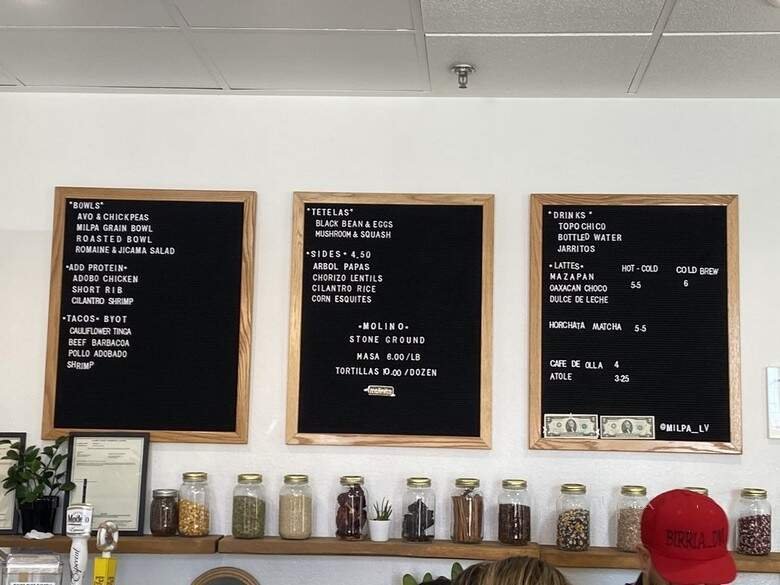 *BOWLS*
AVO & CHICKPEAS
MILPA GRAIN BOWL
ROASTED BOWL
ROMAINE & JICAMA SALAD
*ADD PROTEIN*
ADOBO CHICKEN
SHORT RIB
CILANTRO SHRIMP
*TACOS* BYOT
CAULIFLOWER TINGA
BEEF BARBACOA
POLLO ADOBADO
SHRIMP
*TETELAS*
BLACK BEAN & EGGS
MUSHROOM & SQUASH
*SIDES* 4.50
ARBOL PAPAS
CHORIZO LENTILS
CILANTRO RICE
CORN ESQUITES
*MOLINO*
STONE GROUND
MASA 6.00/LB
TORTILLAS 10.00/DOZEN
*DRINKS*
TOPO CHICO
BOTTLED WATER
JARRITOS
*LATTES* HOT-COLD COLD BREW
MAZAPAN
OAXACAN CHOCO 5.5 6
DULCE DE LECHE
HORCHATA MATCHA 5.5
CAFE DE OLLA 4
ATOLE 3.25
@MILPA_LV
Modelo
Especial